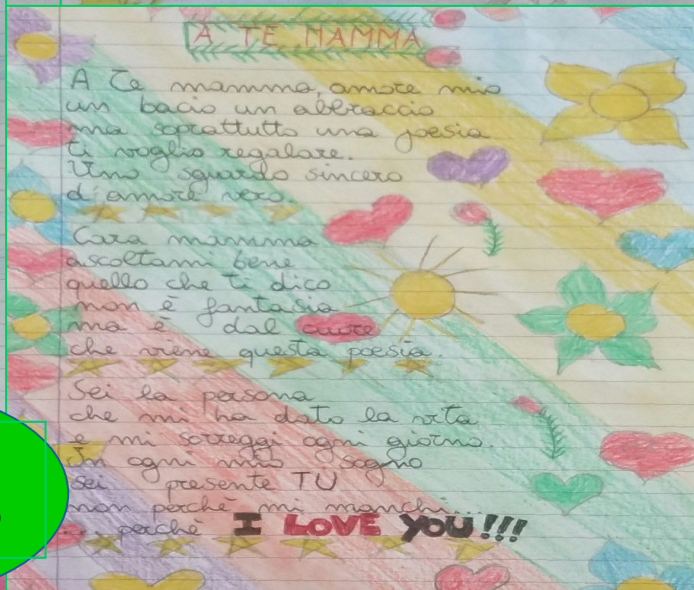 A TE MAMMA
A Te mamma, amore mio
un bacio un abbraccio
ma soprattutto una poesia
ti voglio regalare.
Uno sguardo sincero
d'amore vero.
Cara mamma
ascoltami bene
quello che ti dico
non è fantasia
ma è dal cuore
che viene questa poesia.
Sei la persona
che mi ha dato la vita
e mi sorreggi ogni giorno.
In ogni mio sogno
sei presente TU
non perchè mi manchi...
.. perchè I LOVE YOU!!!